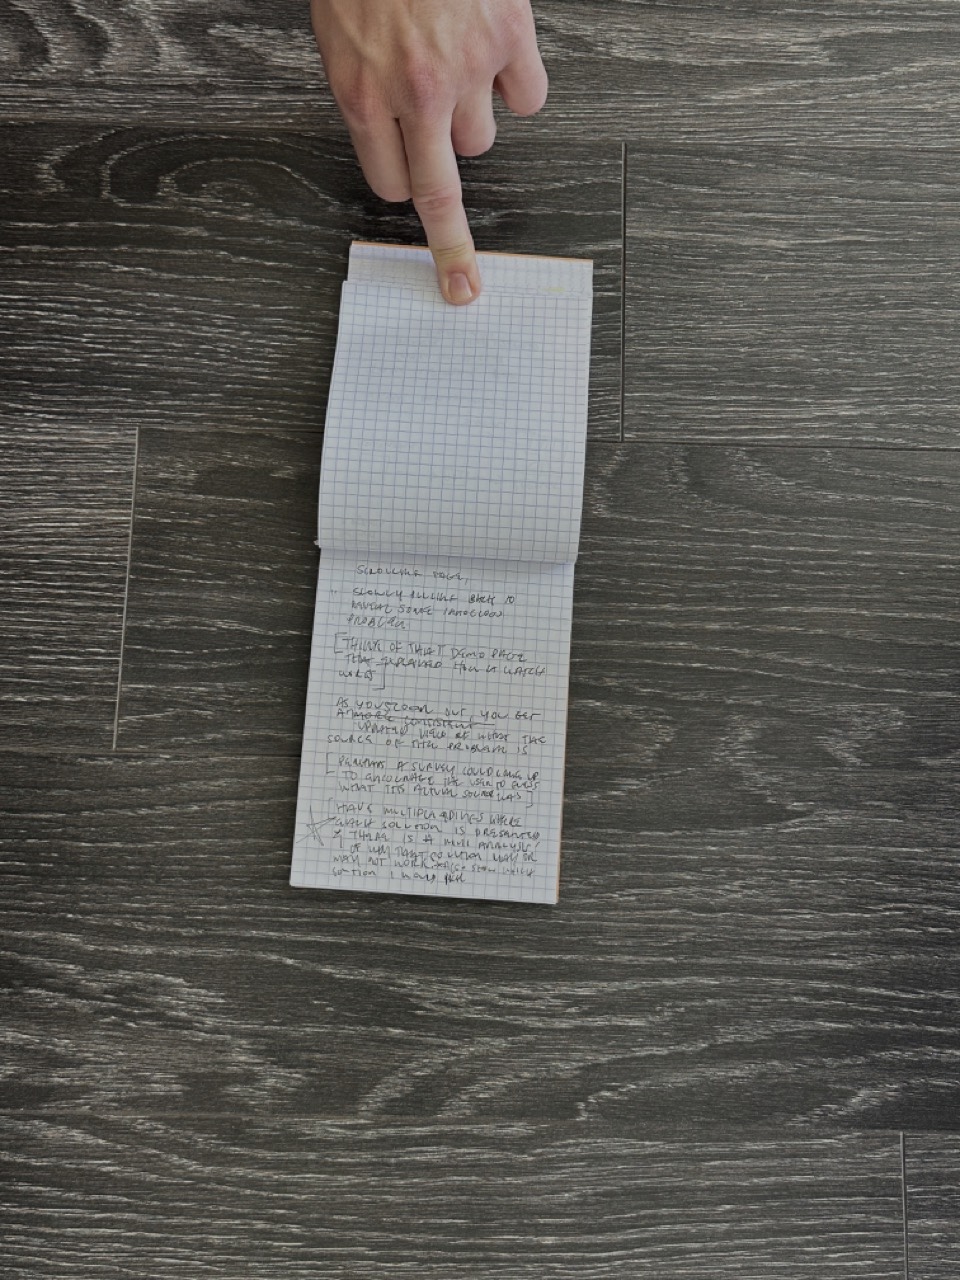 SCROLLING PAGE,
SLOWLY BACK TO
REVEAL SOME
PROBLEM
[THINK OF THAT DEMO PAGE
THAT EXPLAINED HOW A WATCH
WORKS]
AS YOU ZOOM OUT, YOU GET
A MORE CONSISTENT
UPDATED VIEW OF WHAT THE
SOURCE OF THE PROBLEM IS
[PERHAPS A SURVEY COULD COME UP
TO ENCOURAGE THE USER TO GUESS
WHAT ITS ACTUAL SOURCE WAS]
[HAVE MULTIPLE ENDINGS WHERE
EACH SOLUTION IS PRESENTED,
& THERE IS A MINI ANALYSIS
OF WHY THAT SOLUTION MAY OR
MAY NOT WORK. ALSO SHOW WHICH
SOLUTION I WOULD PICK